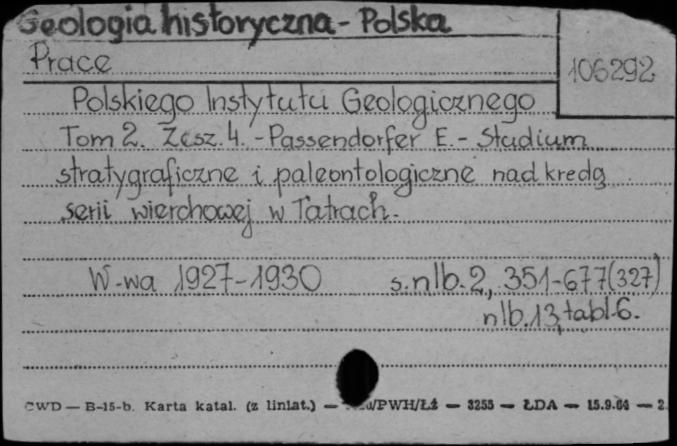 Geologia historyczna - Polska
Prace
106292
Polskiego Instytutu Geologicznego
Tom 2. Zesz. 4. - Passendorfer E. - Studium
stratygraficzne i paleontologiczne nad kredą
serii wierchowej w Tatrach.
W-wa 1927-1930 s. nlb. 2, 351-677 (327)
nlb. 13, tabl. 6.
CWD — B-15-b. Karta katal. (z liniat.) — /PWH/Łź — 3255 — ŁDA — 15.9.64 — 2